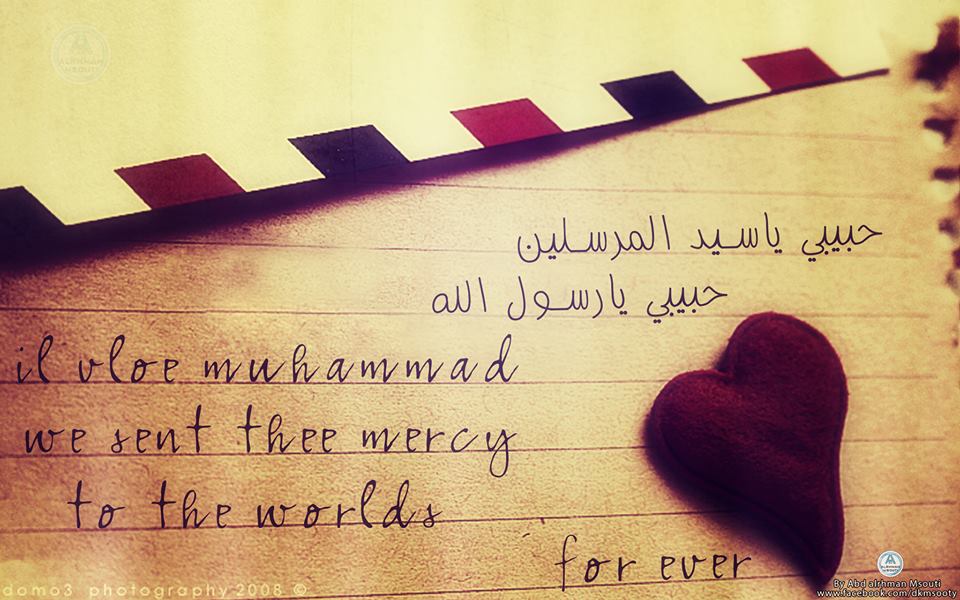 ALRHMAN
MSOUTI
حبيبي ياسيد المرسلين
حبيبي يارسول الله
il vloe muhammad
we sent thee mercy
to the worlds
for ever
domo3 photography.2008 ©
By Abd alrhman Msouti
www.facebook.com/dkmsooty